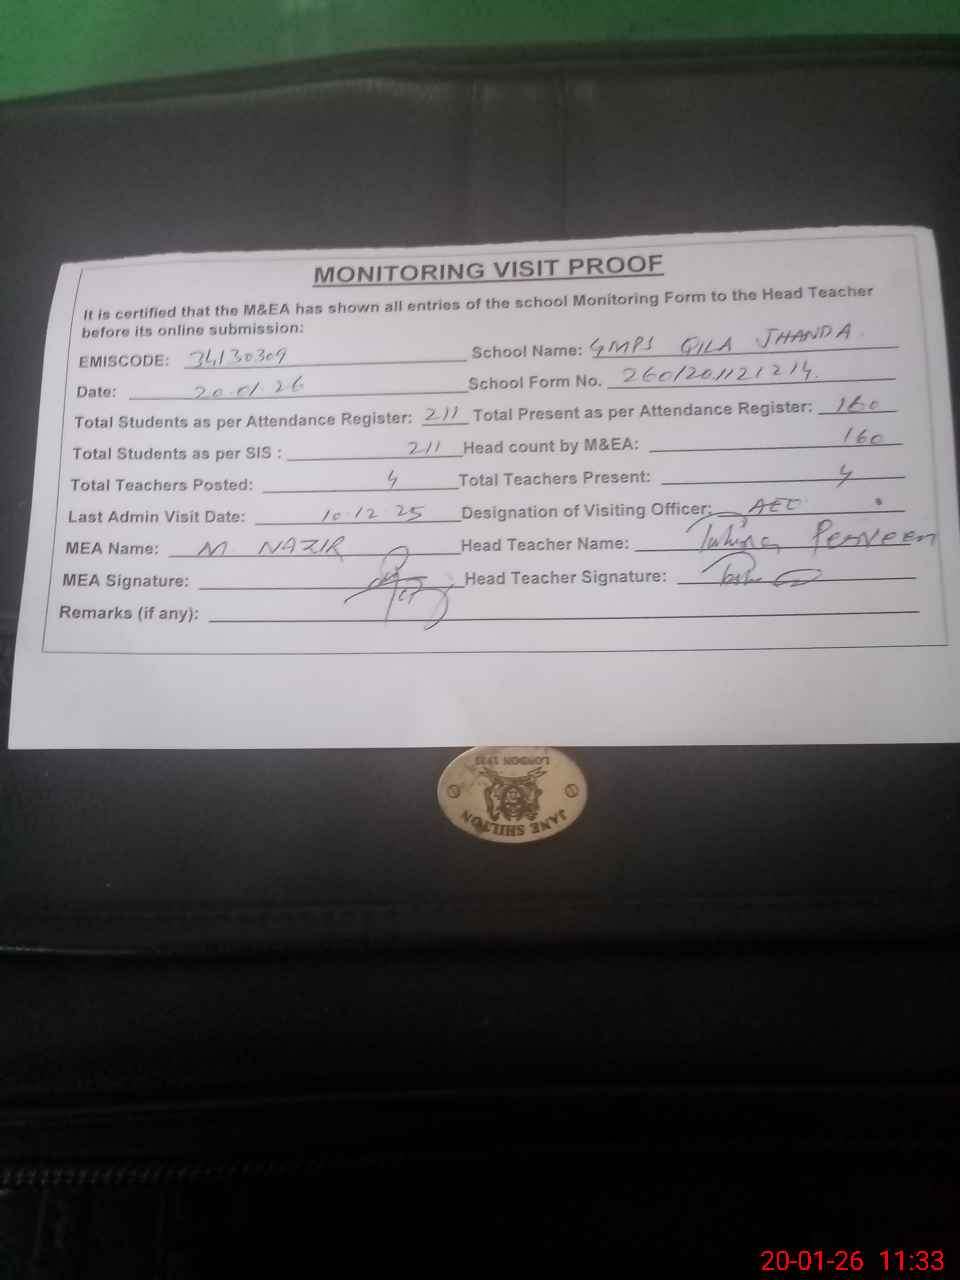 MONITORING VISIT PROOF
It is certified that the M&EA has shown all entries of the school Monitoring Form to the Head Teacher
before its online submission:
EMISCODE: 34130309 School Name: GMPS QILA JHANDA.
Date: 20.01.26 School Form No. 2601201121214.
Total Students as per Attendance Register: 211 Total Present as per Attendance Register: 160
Total Students as per SIS : 211 Head count by M&EA: 160
Total Teachers Posted: 4 Total Teachers Present: 4
Last Admin Visit Date: 10.12.25 Designation of Visiting Officer: AEO
MEA Name: M. NAZIR Head Teacher Name: Perveen
MEA Signature: Head Teacher Signature:
Remarks (if any):
LONDON
JANE SHILTON
20-01-26 11:33